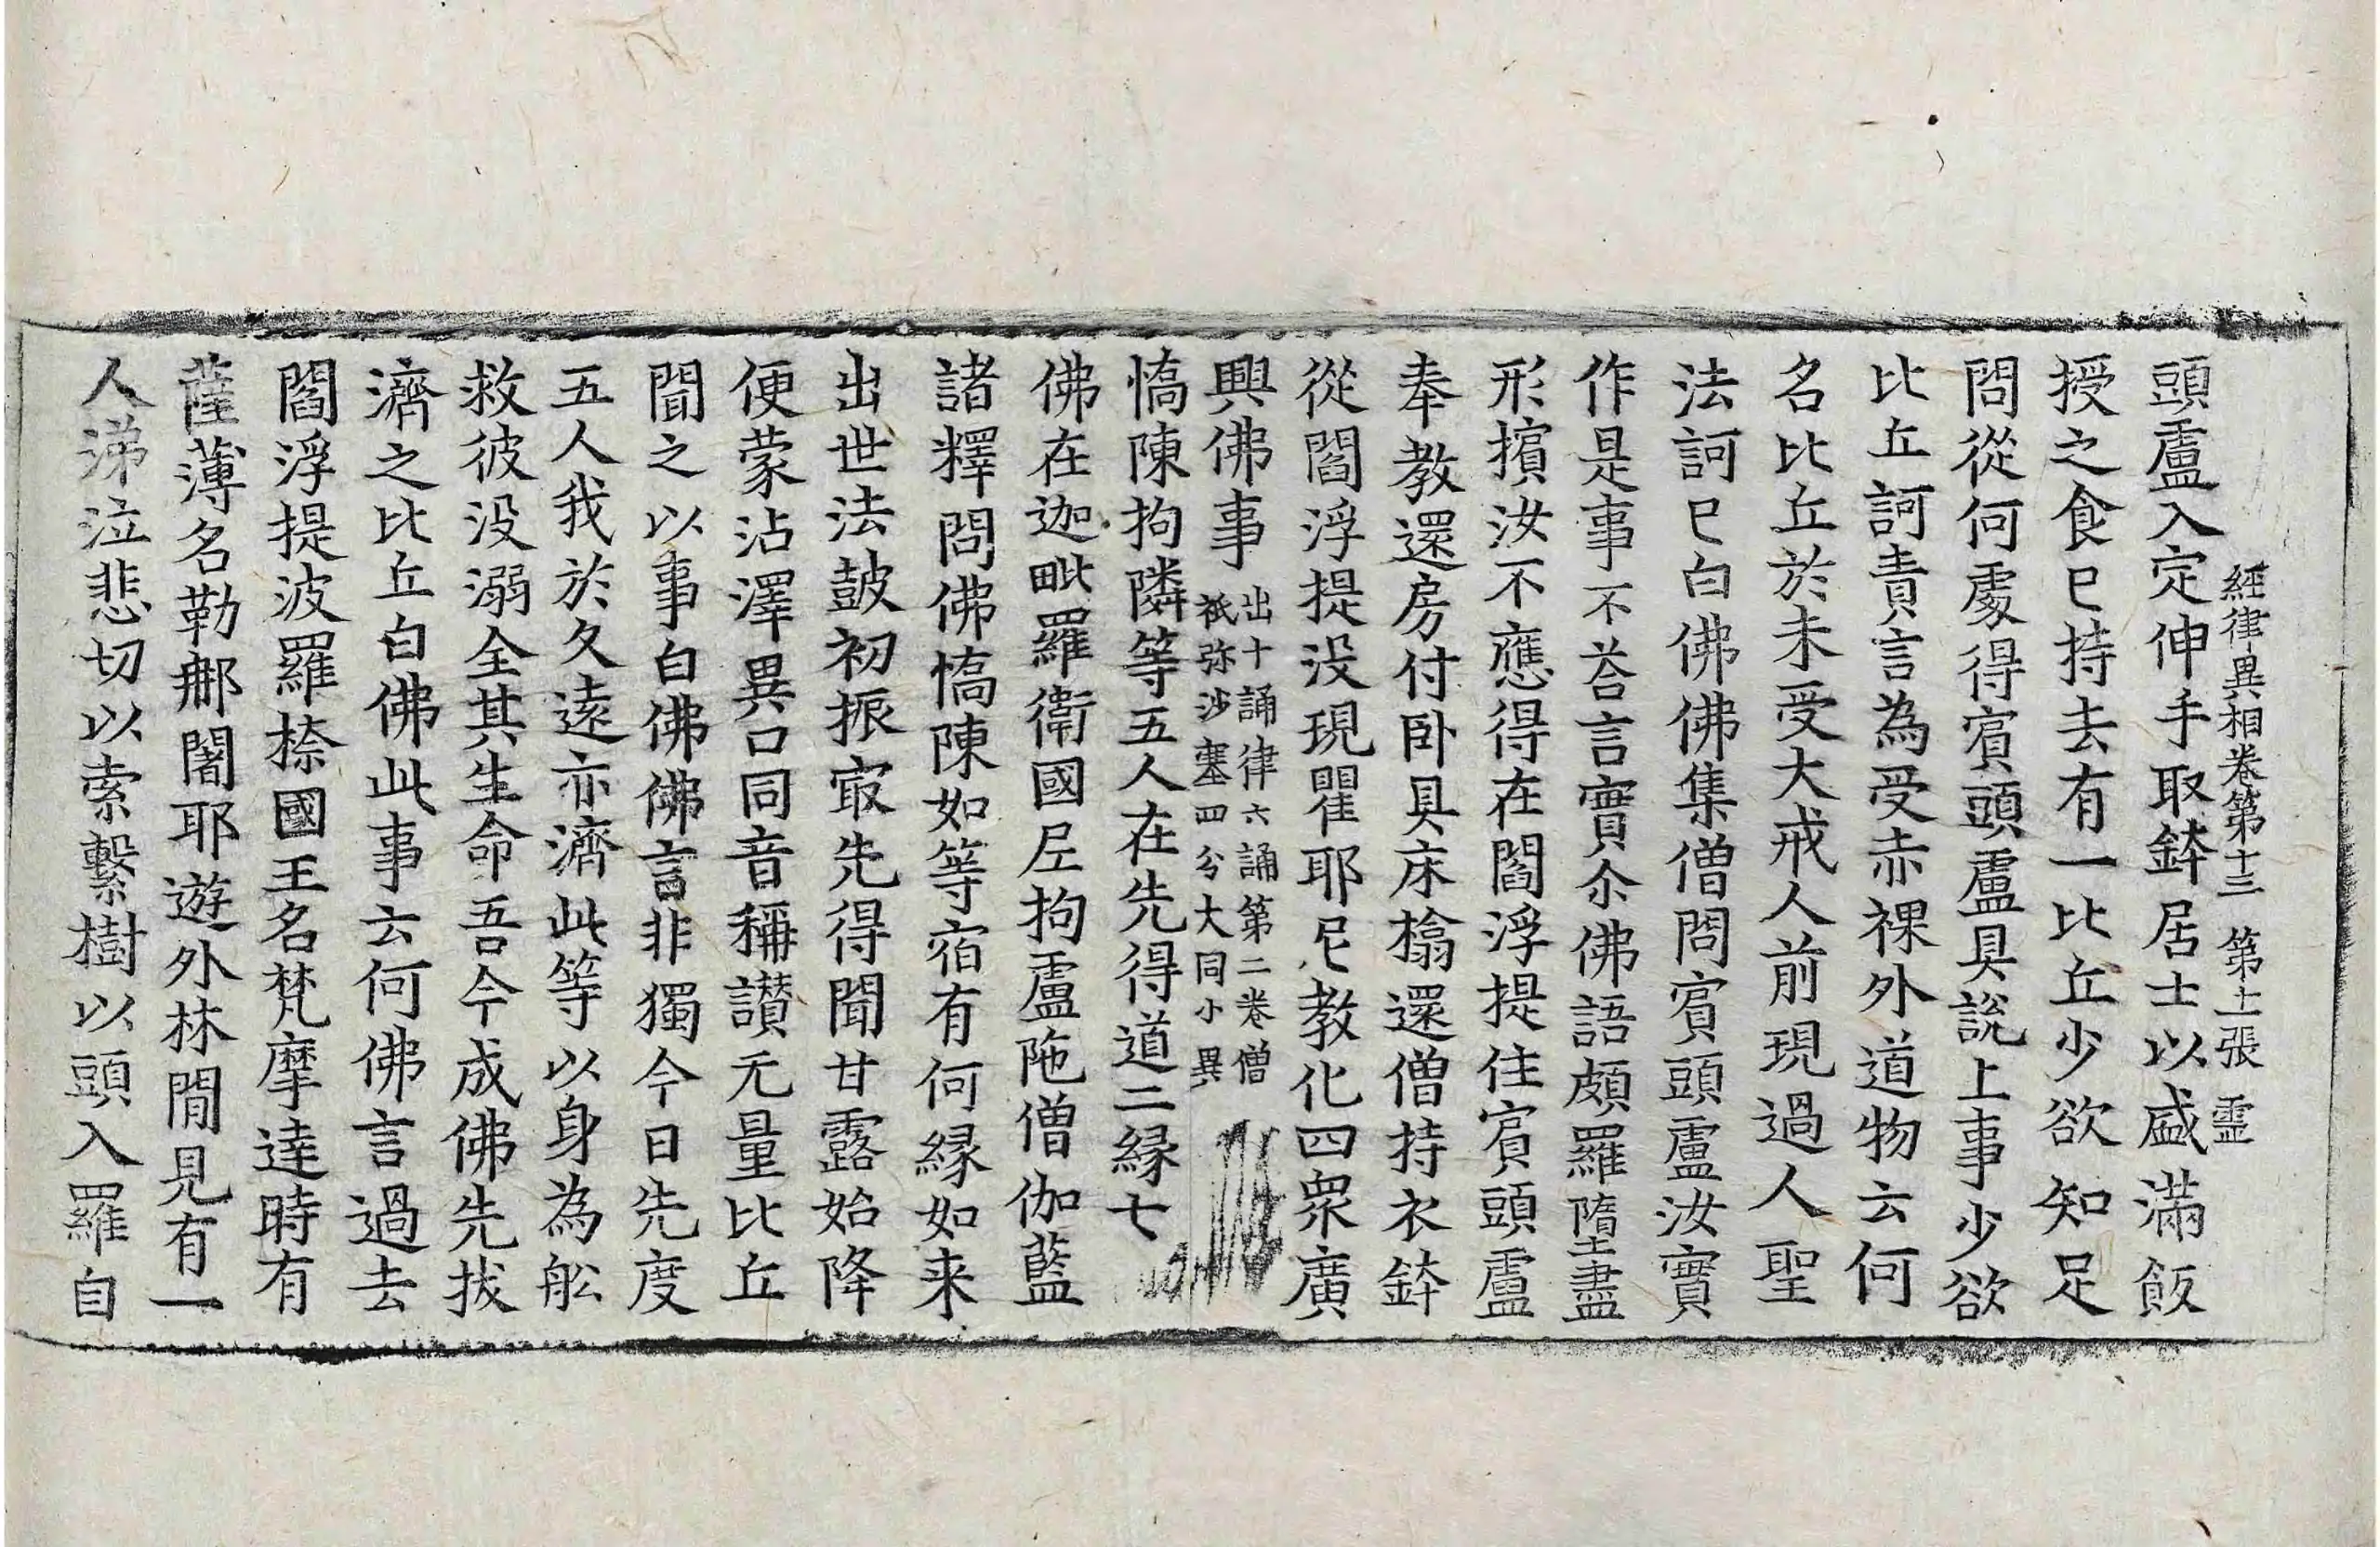 經律異相卷第十三 第十一張 靈
頭盧入定伸手取鉢居士以盛滿飯
授之食已持去有一比丘少欲知足
問從何處得賔頭盧具說上事少欲
比丘訶責言為受赤裸外道物云何
名比丘於未受大戒人前現過人聖
法訶已白佛佛集僧問賔頭盧汝實
作是事不荅言實尒佛語頗羅墮盡
形擯汝不應得在閻浮提住賔頭盧
奉教還房付卧具床㯓還僧持衣鉢
從閻浮提没現瞿耶尼教化四衆廣
興佛事 出十誦律六誦第二卷僧
祇弥沙塞四分大同小異
憍陳拘隣等五人在先得道二緣七
佛在迦毗羅衛國尼拘盧陁僧伽藍
諸釋問佛憍陳如等宿有何緣如来
出世法鼓初振㝡先得聞甘露始降
便蒙沾澤異口同音稱讃无量比丘
聞之以事白佛佛言非獨今日先度
五人我於久遠亦濟此等以身為舩
救彼没溺全其生命吾今成佛先拔
濟之比丘白佛此事云何佛言過去
閻浮提波羅㮈國王名梵摩達時有
薩薄名勒那闍耶遊外林間見有一
人涕泣悲切以索繫樹以頭入羅自